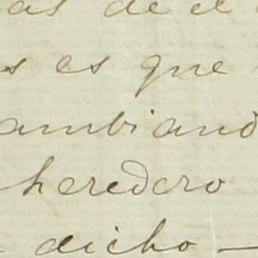 as de el
s es que
ambiand
heredero
dicho —